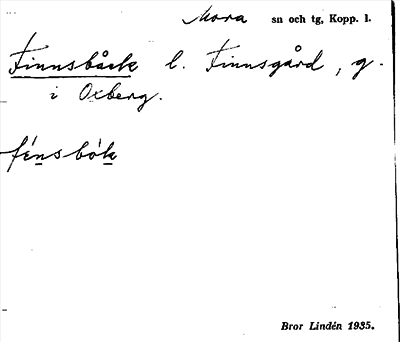 Mora sn och tg, Kopp. l.
Finnsbåck l. Finnsgård, g.
i Oxberg.
fénsbók
Bror Lindén 1935.